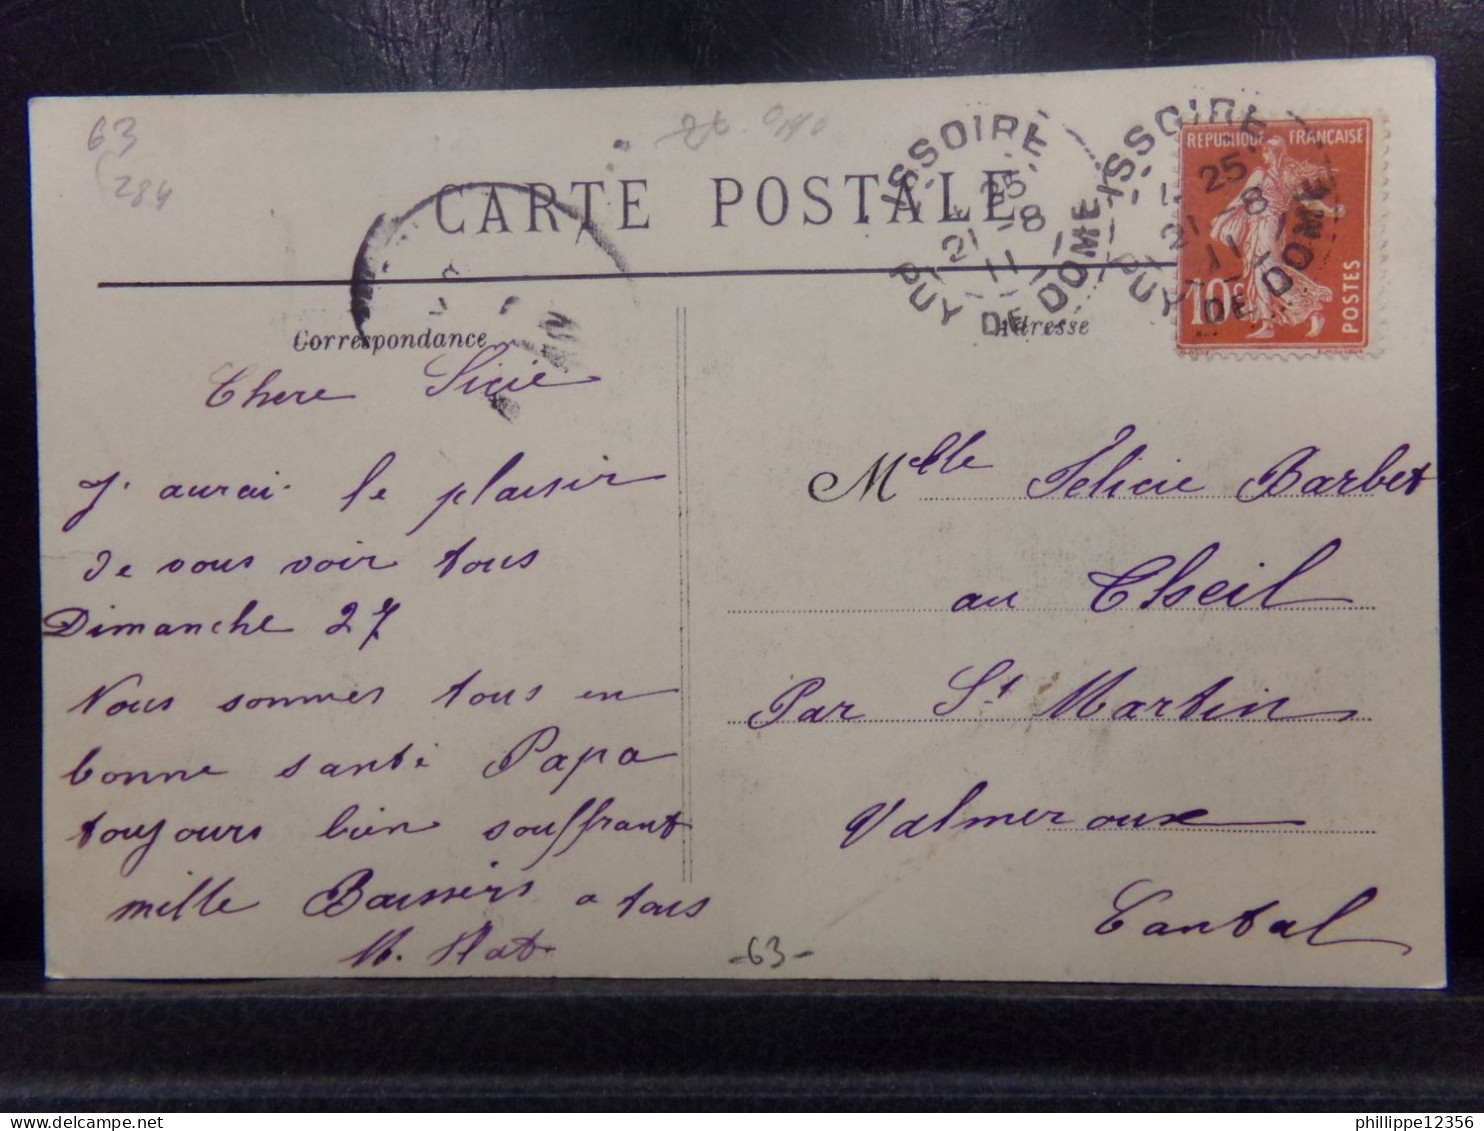 63
284
CARTE POSTALE
ISSOIRE
25
21 -8
11
PUY DE DOME
ISSOIRE
25
21 -8
11
PUY DE DOME
REPUBLIQUE FRANCAISE
10c
POSTES
Correspondance
Adresse
Chere Sicie
J'aurai le plaisir
de vous voir tous
Dimanche 27
Nous sommes tous en
bonne santé Papa
toujours bien souffrant
mille Baisers a tous
Melle Félicie Barbet
au Theil
Par St Martin
Valmeroux
Cantal
-63-
phillippe12356